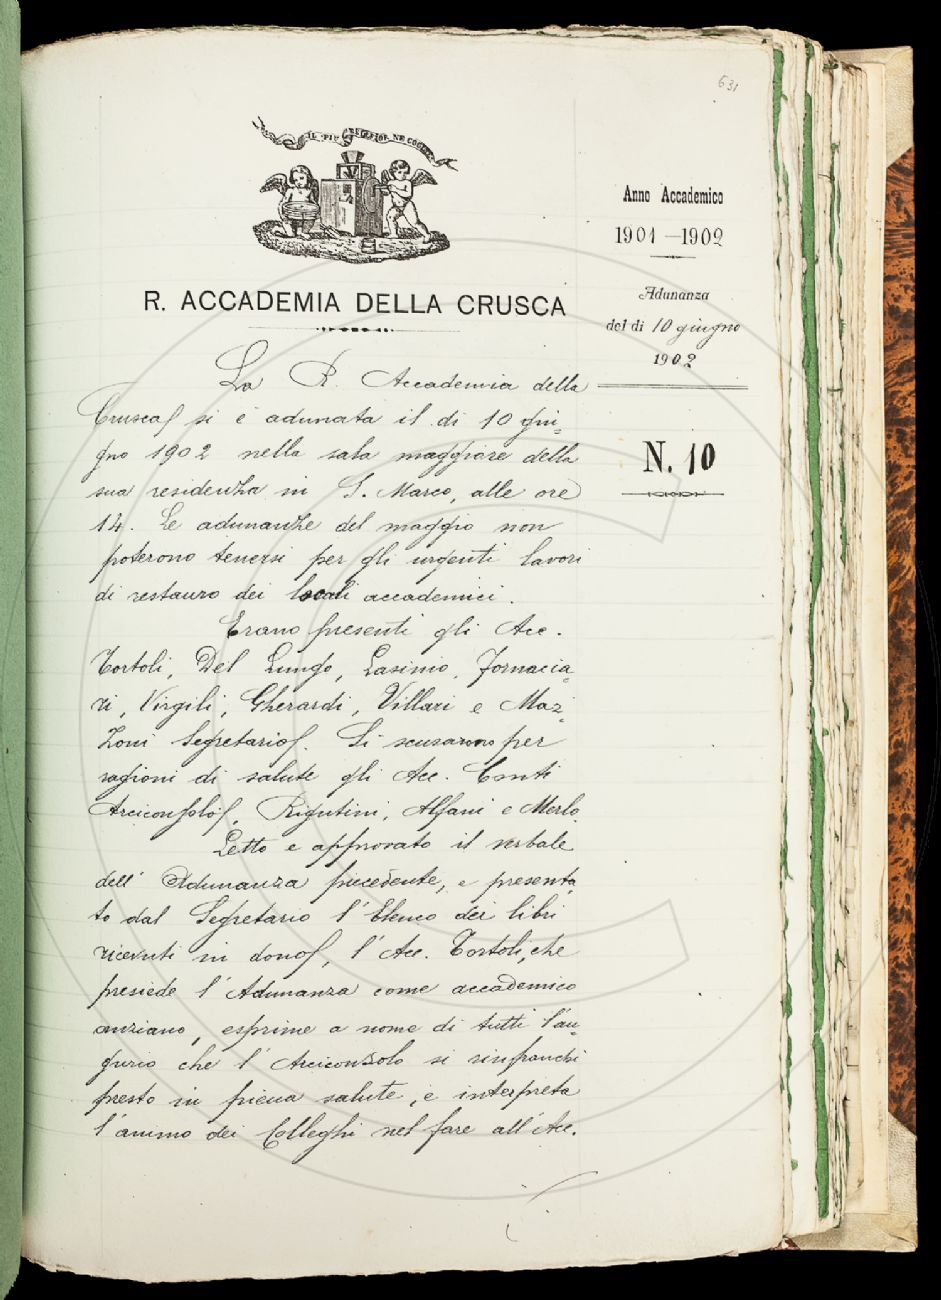 631
IL PIÙ BEL FIOR NE COGLIE
R. ACCADEMIA DELLA CRUSCA
Anno Accademico
1901–1902
Adunanza
del dì 10 giugno
1902
N. 10
La R. Accademia della
Crusca si è adunata il dì 10 giu-
gno 1902 nella sala maggiore della
sua residenza in S. Marco, alle ore
14. Le adunanze del maggio non
poterono tenersi per gli urgenti lavori
di restauro dei locali accademici.
Erano presenti gli Acc.
Tortoli, Del Lungo, Lasinio, Fornacia-
ri, Virgili, Gherardi, Villari e Maz-
zoni Segretario. Si scusarono per
ragioni di salute gli Acc. Conti
Arciconsolo, Rigutini, Alfani e Merlo.
Letto e approvato il verbale
dell' Adunanza precedente, e presenta-
to dal Segretario l'Elenco dei libri
ricevuti in dono, l'Acc. Tortoli, che
presiede l'Adunanza come accademico
anziano, esprime a nome di tutti l'au-
gurio che l'Arciconsolo si rinfranchi
presto in piena salute, e interpreta
l'animo dei Colleghi nel fare all'Acc.